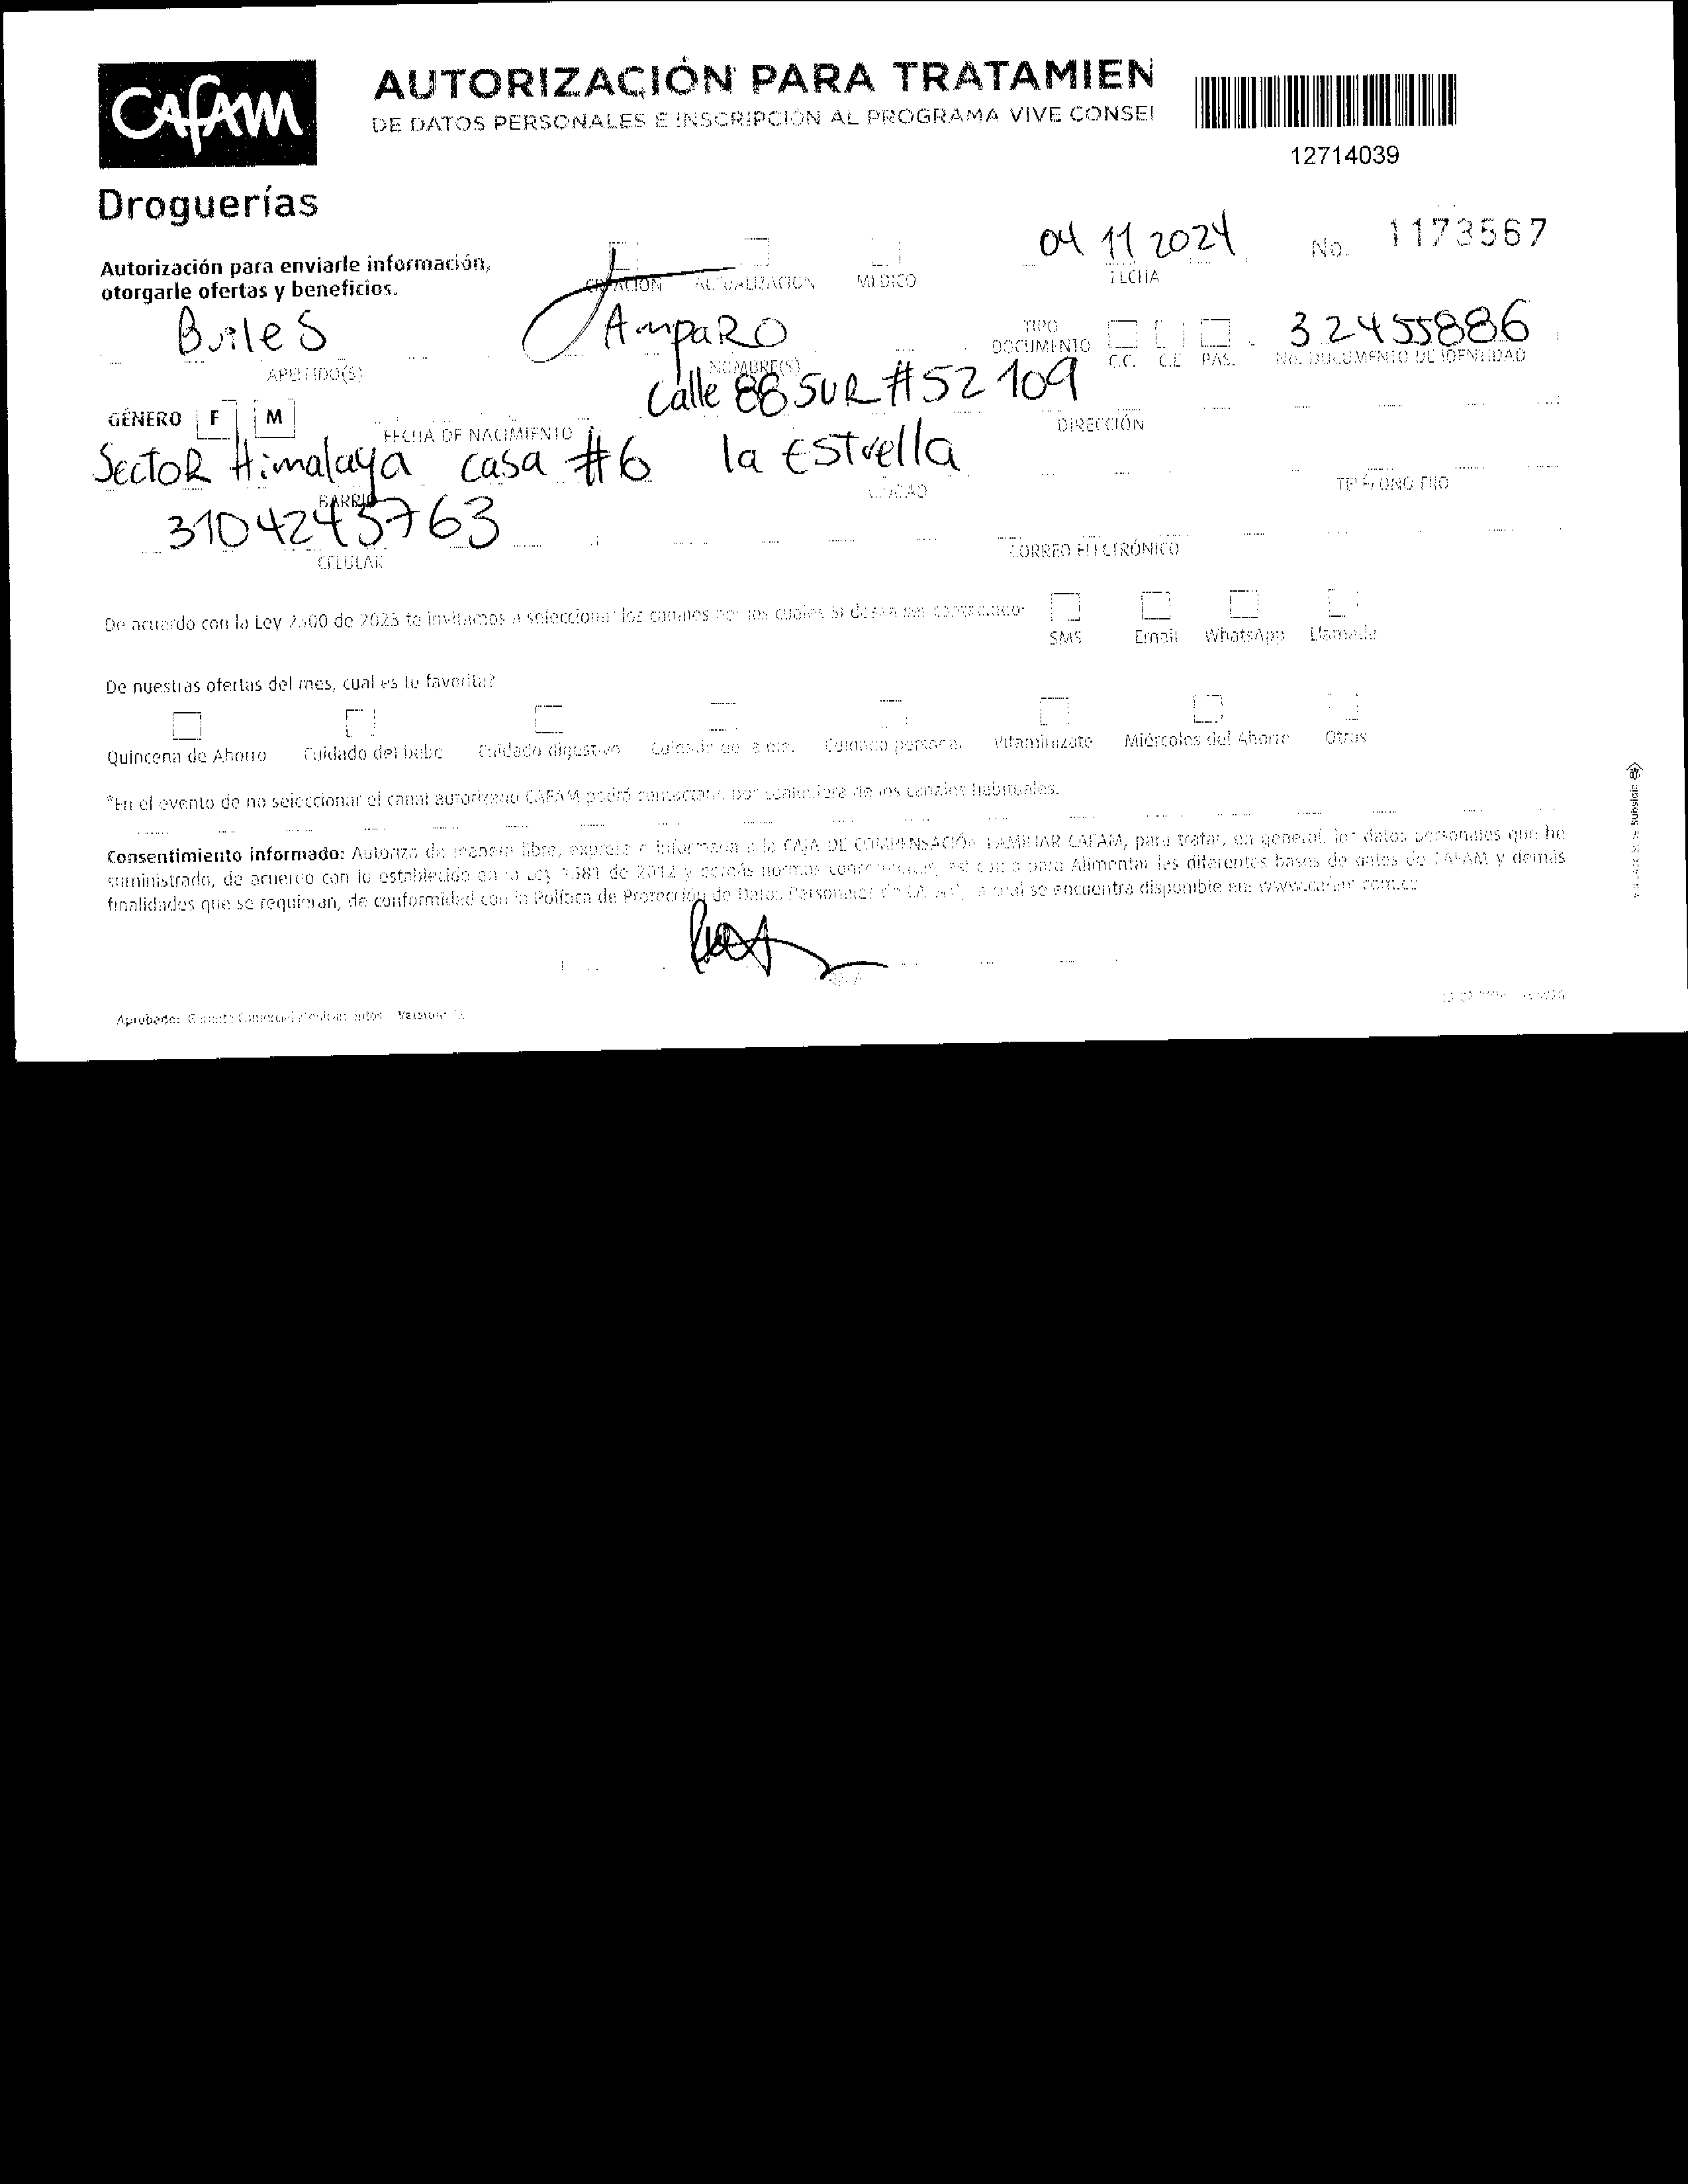 CAFAM
Droguerías
AUTORIZACIÓN PARA TRATAMIEN
DE DATOS PERSONALES E INSCRIPCIÓN AL PROGRAMA VIVE CONSEI
12714039
Autorización para enviarle información,
otorgarle ofertas y beneficios.
CREACIÓN ACTUALIZACIÓN MEDICO
04 11 2024
FECHA
No. 1173567
Builes
APELLIDO(S)
Amparo
NOMBRE(S)
TIPO
DOCUMENTO
C.C. C.E PAS.
32455886
No. DOCUMENTO DE IDENTIDAD
GÉNERO F M
FECHA DE NACIMIENTO
Calle 88 SUR #52 109
DIRECCIÓN
Sector Himalaya casa #6 la Estrella
BARRIO
CIUDAD
TELÉFONO FIJO
3104245763
CELULAR
CORREO ELECTRÓNICO
De acuerdo con la Ley 2300 de 2023 te invitamos a seleccionar los canales por los cuales si desea ser contactado:
SMS Email WhatsApp Llamada
De nuestras ofertas del mes, cual es tu favorita?
Quincena de Ahorro Cuidado del bebe Cuidado digestivo Cuidado personal Vitaminízate Miércoles del Ahorro Otras
*En el evento de no seleccionar el canal autorizado CAFAM podrá contactarte por cualquiera de los canales habituales.
Consentimiento informado: Autorizo de manera libre, expresa e informada a la CAJA DE COMPENSACIÓN FAMILIAR CAFAM, para tratar, en general, los datos personales que he
suministrado, de acuerdo con lo establecido en la Ley 1581 de 2012 y demás normas concordantes, así como para Alimentar las diferentes bases de datos de CAFAM y demás
finalidades que se requieran, de conformidad con la Política de Protección de Datos Personales de CAFAM, la cual se encuentra disponible en: www.cafam.com.co
FIRMA
Aprobado:
Versión:
Subsidio